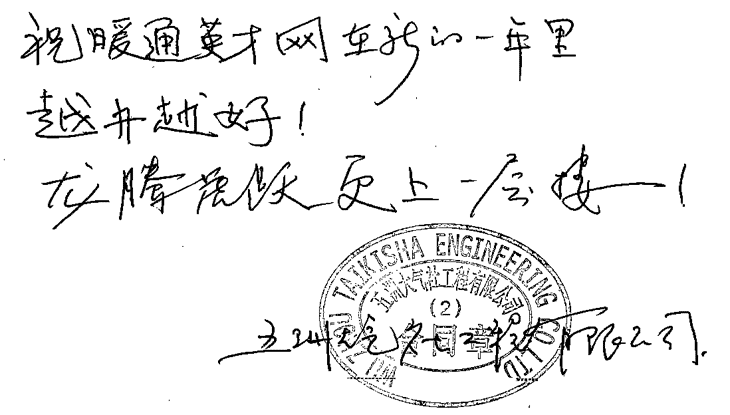 祝暖通英才网在新的一年里
越办越好！
龙腾虎跃 更上一层楼！
WU ZHOU TAIKISHA ENGINEERING CO LTD
五洲大气社工程有限公司
(2)
合同章
五洲大气社工程有限公司.